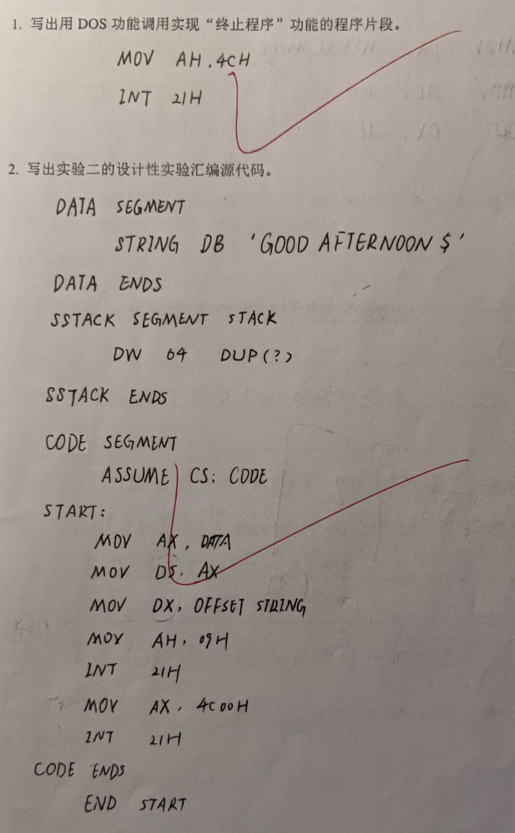 1. 写出用 DOS 功能调用实现“终止程序”功能的程序片段。
MOV AH,4CH
INT 21H
2. 写出实验二的设计性实验汇编源代码。
DATA SEGMENT
STRING DB 'GOOD AFTERNOON $'
DATA ENDS
SSTACK SEGMENT STACK
DW 64 DUP(?)
SSTACK ENDS
CODE SEGMENT
ASSUME CS: CODE
START:
MOV AX, DATA
MOV DS, AX
MOV DX, OFFSET STRING
MOV AH, 09H
INT 21H
MOV AX, 4C00H
INT 21H
CODE ENDS
END START